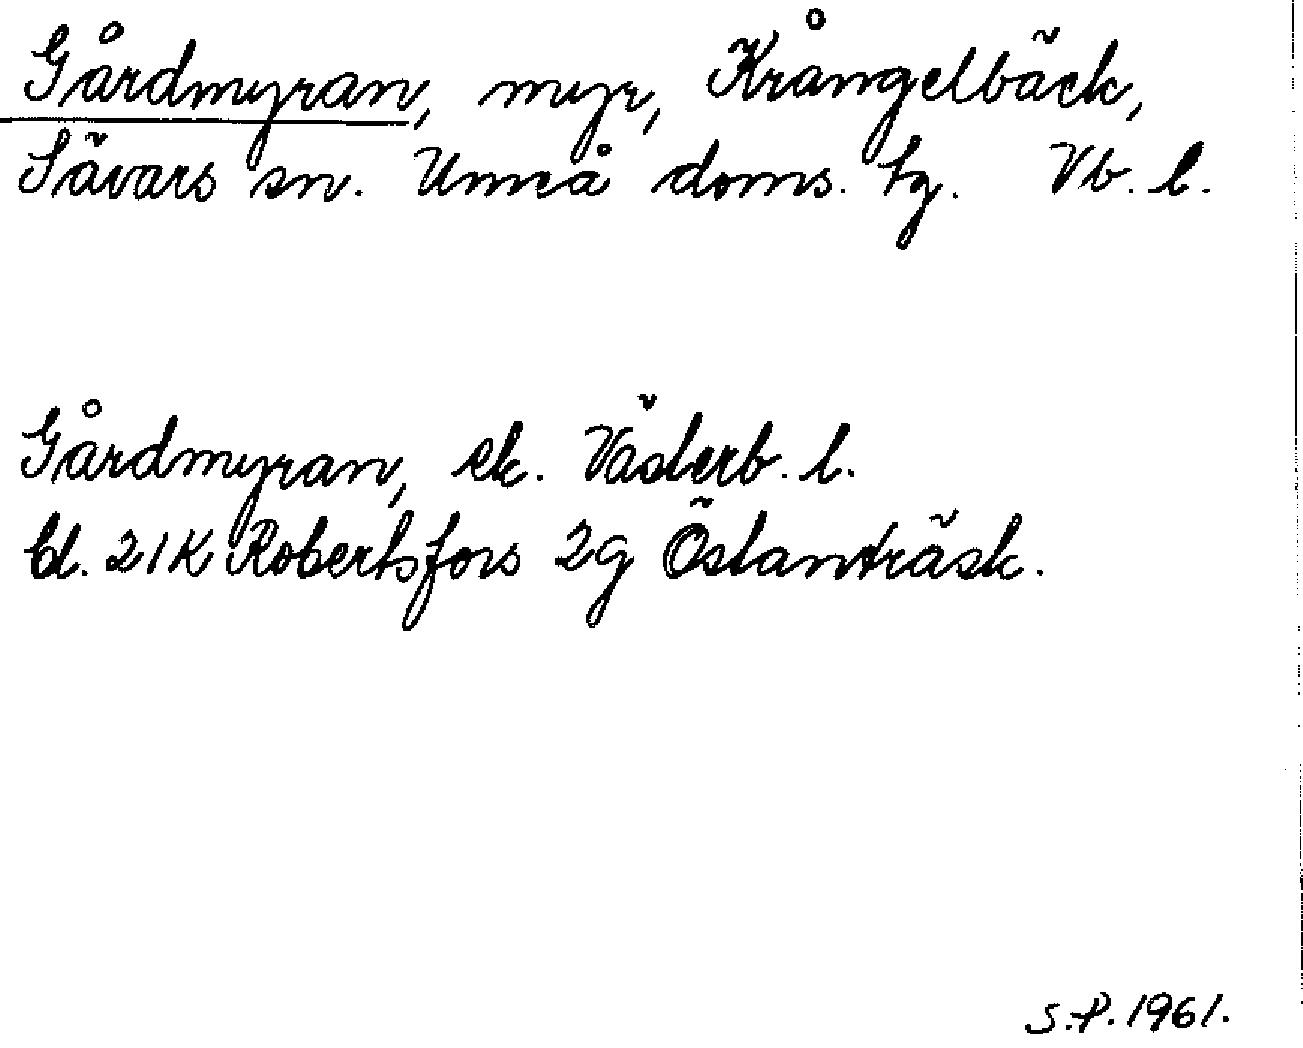 Gårdmyran, myr, Krångelbäck,
Sävars sn. Umeå doms. tg. Vb. l.
Gårdmyran, ek. Väderb. l.
bl. 21K Robertsfors 2g Östanträsk.
S.P. 1961.